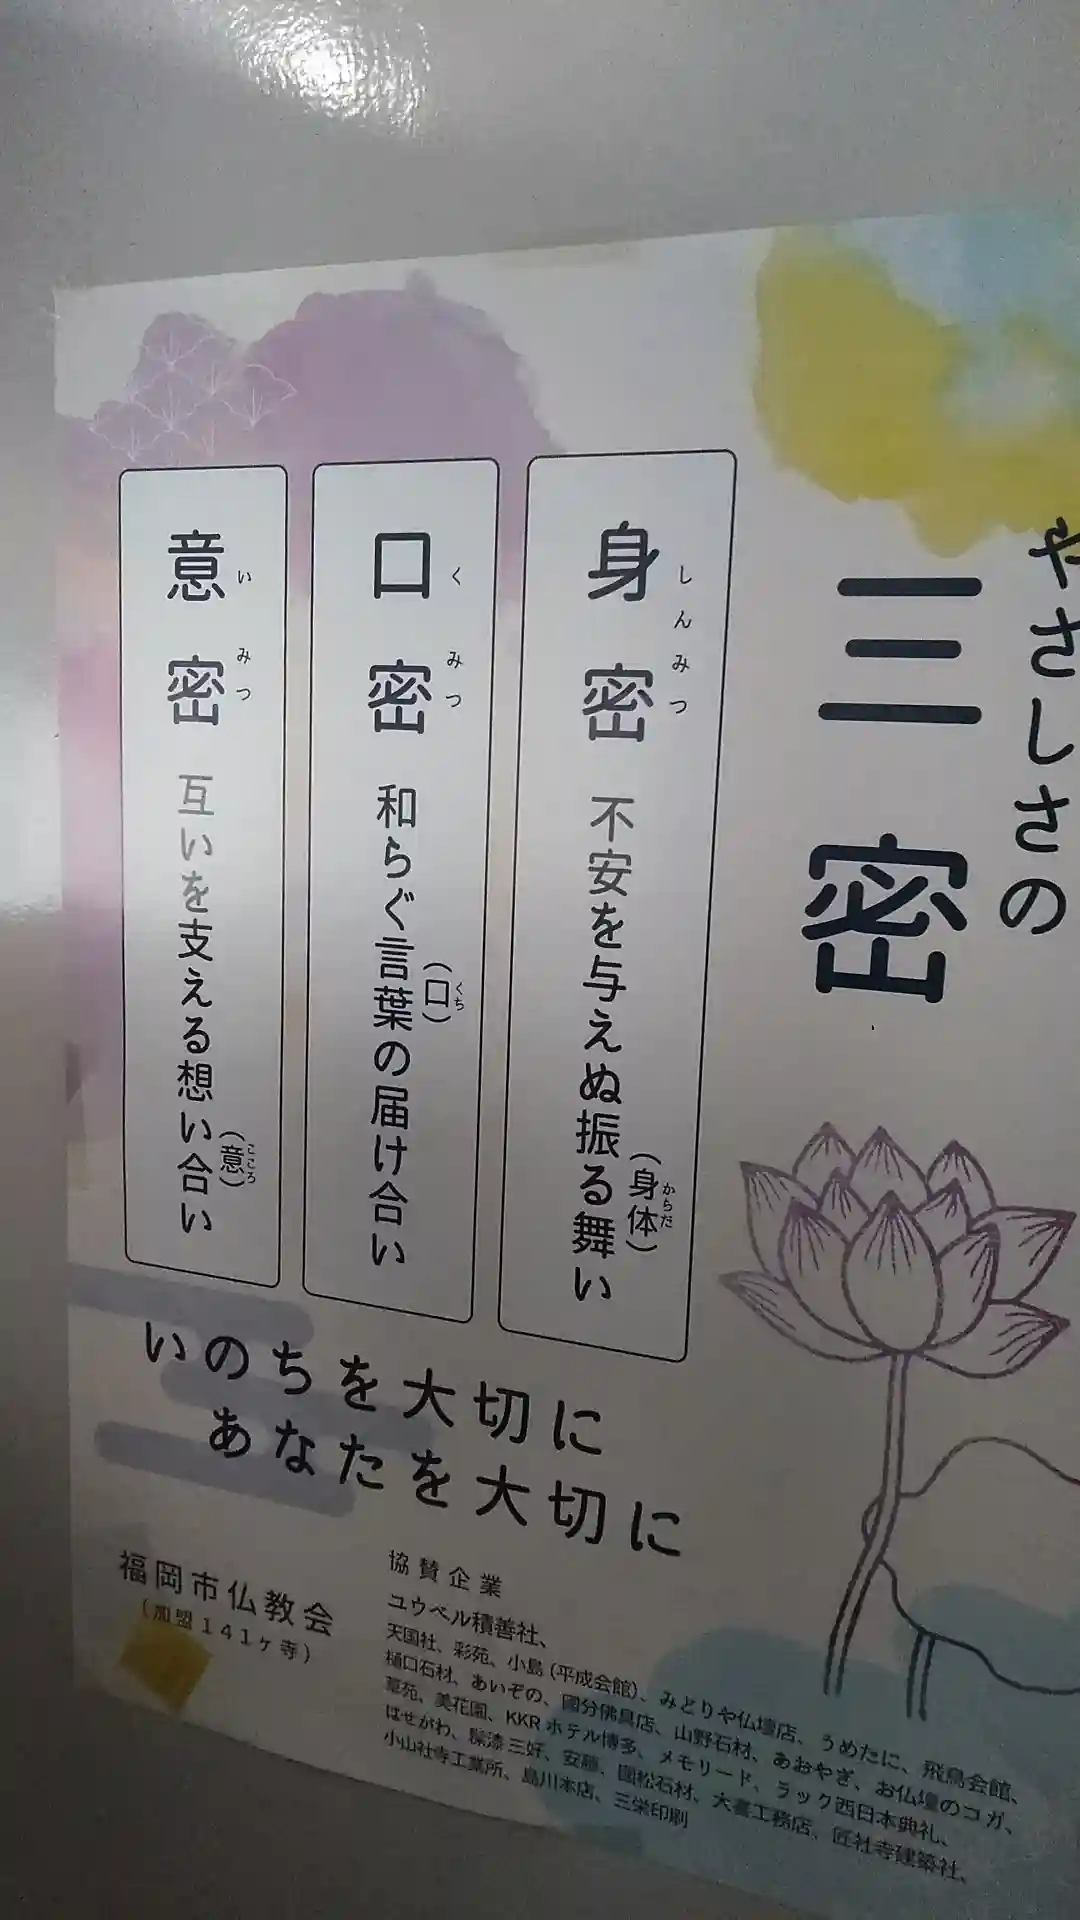 やさしさの
三密
身密 不安を与えぬ振る舞い
しんみつ
(身体)
からだ
口密 和らぐ言葉の届け合い
くみつ
(口)
くち
意密 互いを支える想い合い
いみつ
(意)
こころ
いのちを大切に
あなたを大切に
福岡市仏教会
(加盟141ヶ寺)
協賛企業
ユウベル積善社、
天国社、彩苑、小島(平成会館)、みとりや仏壇店、うめたに、飛鳥会館、
樋口石材、あいぞの、國分佛具店、山野石材、あおやぎ、お仏壇のコガ、
草苑、美花園、KKRホテル博多、メモリード、ラック西日本典礼、
はせがわ、髹漆三好、安藤、國松石材、大喜工務店、匠社寺建築社、
小山社寺工業所、島川本店、三栄印刷